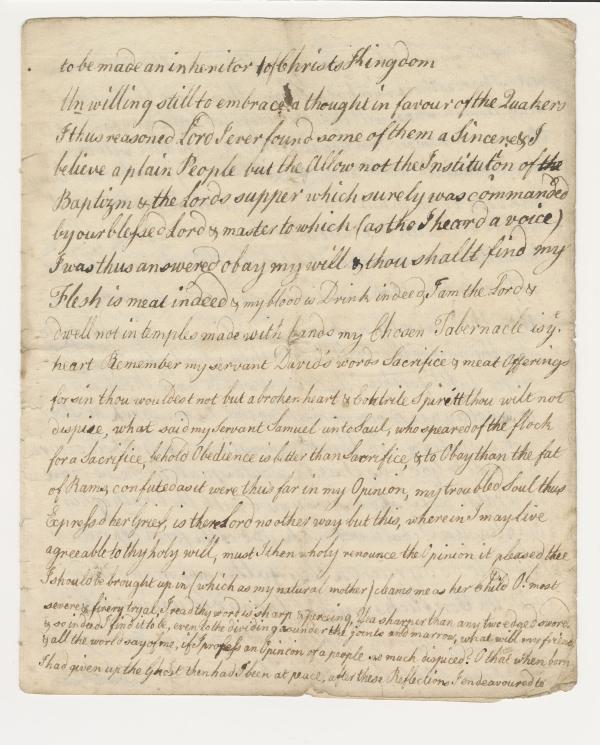 to be made an inheritor of Christs Kingdom
Unwilling still to embrace a thought in favour of the Quakers
I thus reasoned Lord I ever found some of them a Sincere & I
believe a plain People but the Allow not the Institution of the
Baptizm & the Lords supper which surely was commanded
by our blessed Lord & master to which (as tho I heard a voice)
I was thus answered obay my will & thou shallt find my
Flesh is meat indeed & my blood is Drink indeed, I am the Lord &
dwell not in temples made with hands my Chosen Tabernacle is ye
heart Remember my servant David's words Sacrifice & meat Offerings
for sin thou wouldest not but a broken heart & Contrite Spiritt thou wilt not
dispise, what said my servant Samuel unto Saul, who speared of the flock
for a Sacrifice, behold Obedience is better than Sacrifice, & to Obey than the fat
of Rams, confuted as it were thus far in my Opinion, my troubled Soul thus
Express'd her Grief, is there Lord no other way but this, wherein I may live
agreeable to thy holy will, must I then wholy renounce the Opinion it pleased thee
I should be brought up in (which as my natural mother) cleams me as her Child O! most
severe & fiery tryal, I read thy word is sharp & piercing, Yea sharper than any two edged sword
& so indeed I find it to be, even to the dividing asunder the joints and marrow, what will my friends
& all the world say of me, if I profess an Opinion or a people so much dispiced? O that when born
I had given up the Ghost then had I been at peace, after these Reflections I endeavoured to